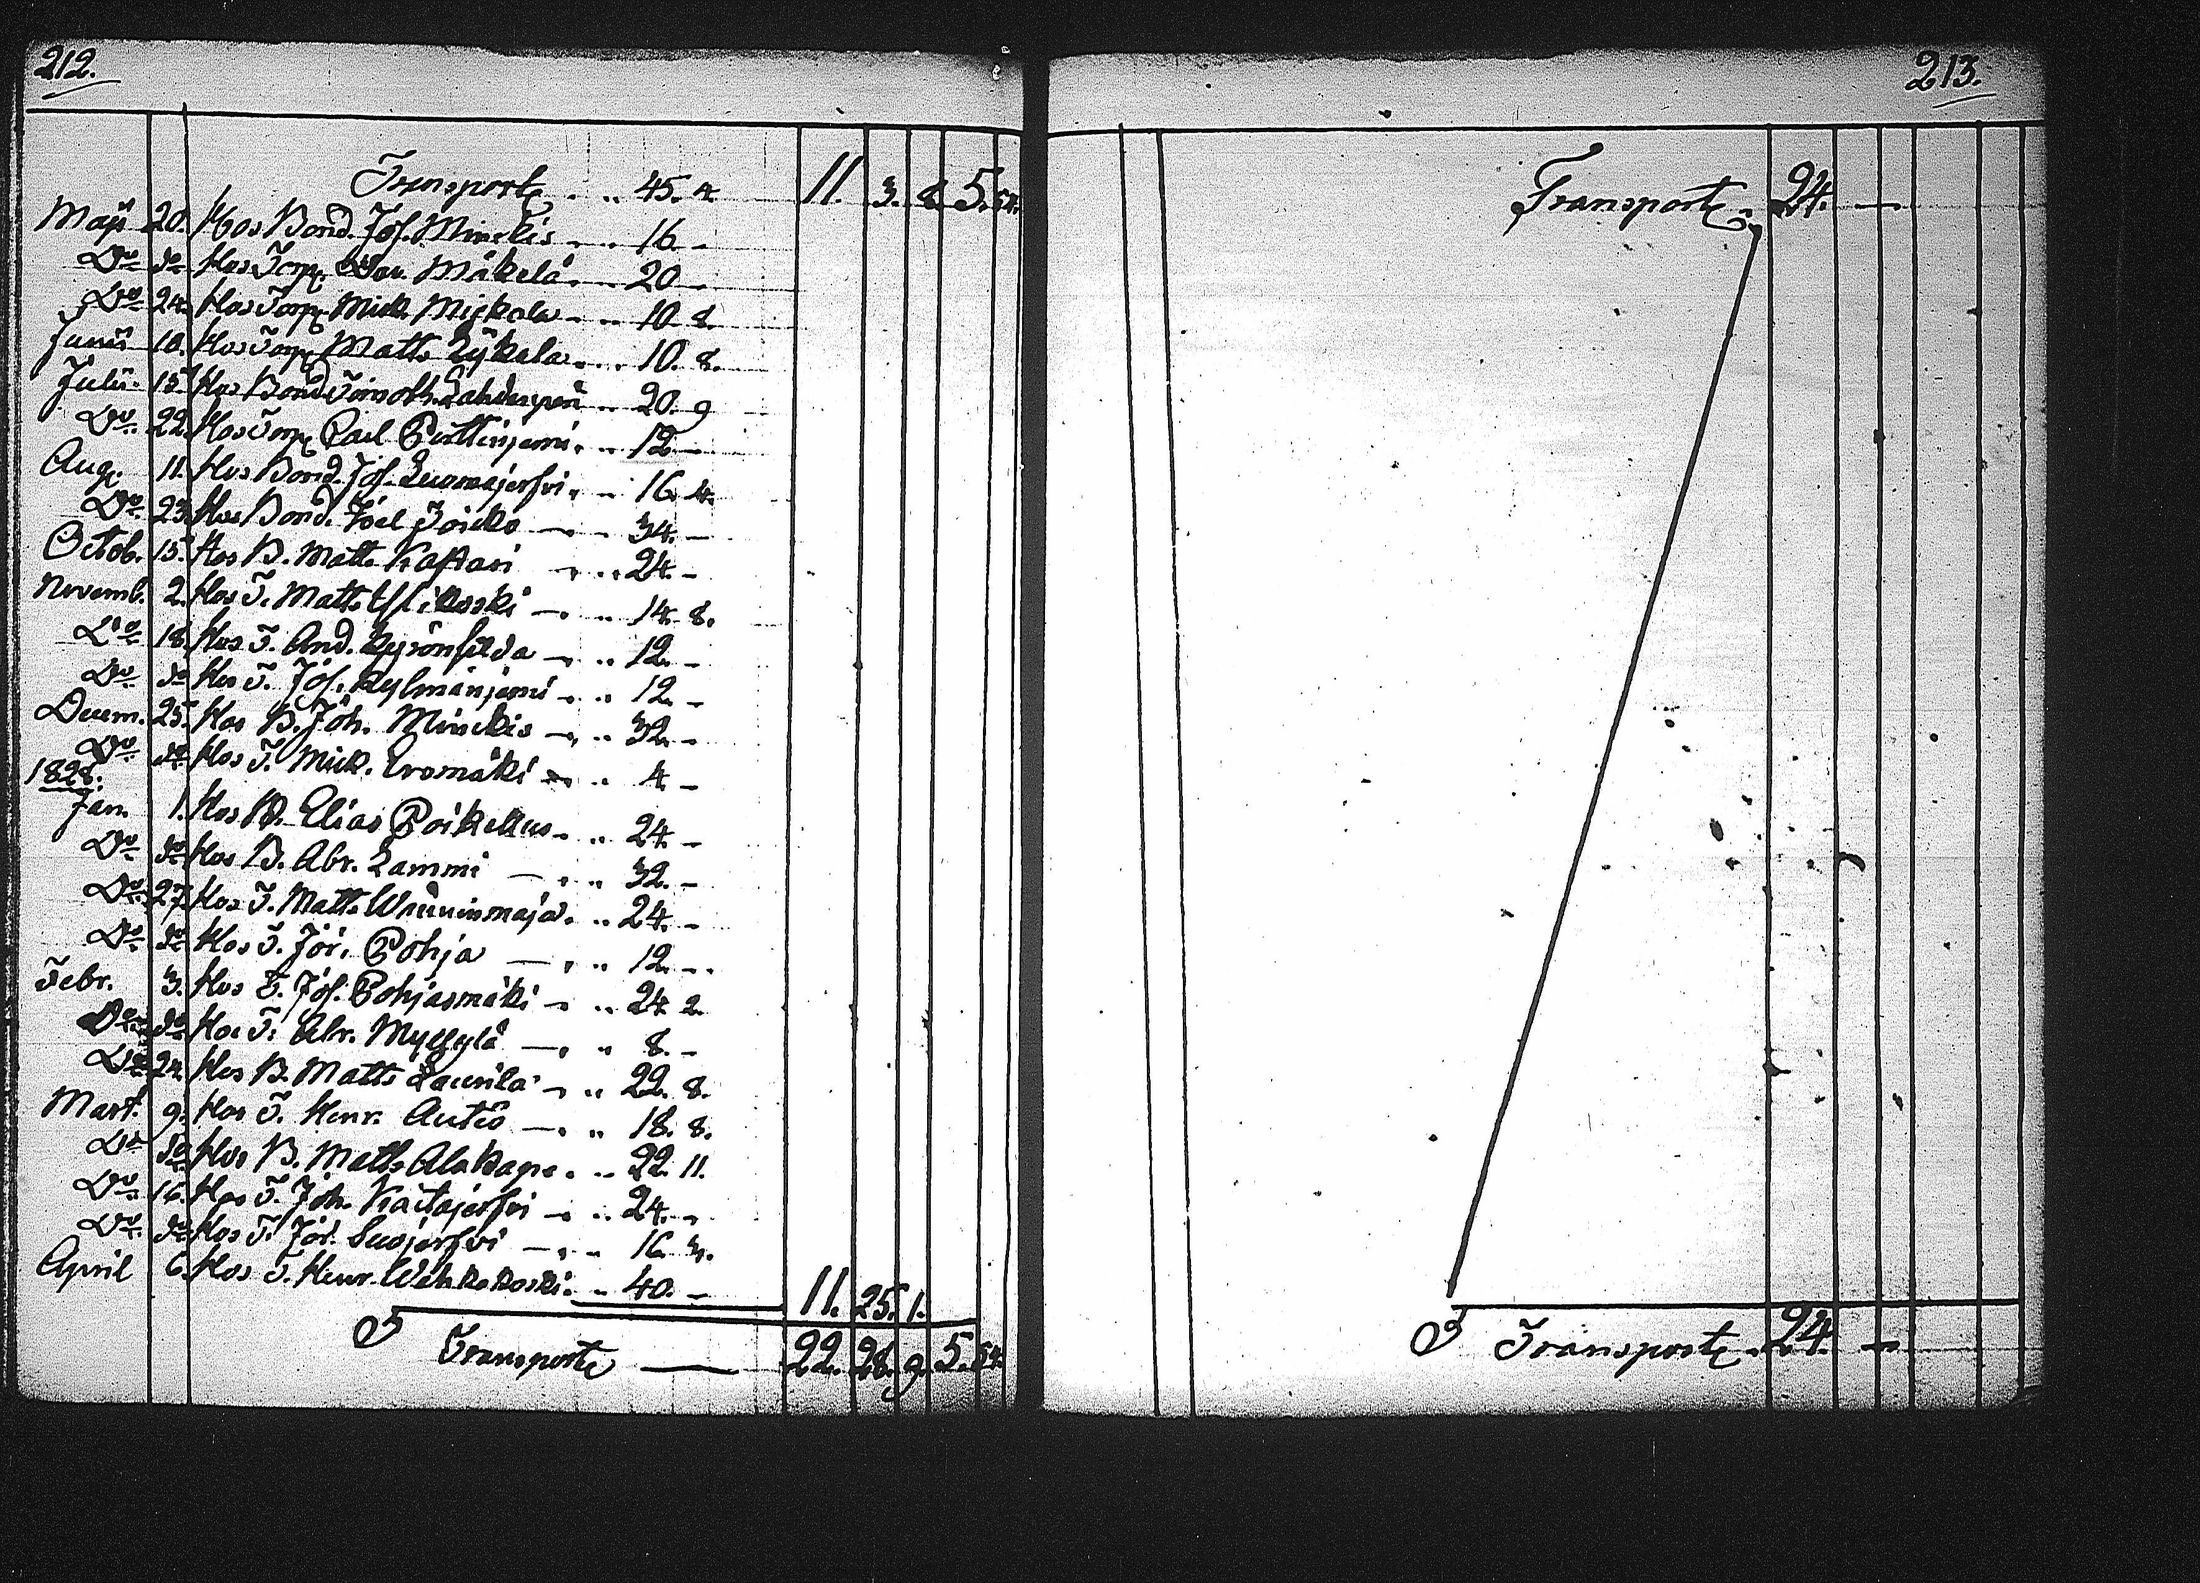 212.
Transport . .. 45. 4. 11. 3. 8. 5. 54.
Maji 20. Hos Bond. Jos. Minckis - .. 16. -
Do do Hos Torp. Mäkelä . .. 20 -
Do 24. Hos Torp. Mick. Mijkola - .. 10 8.
Junii 10. Hos Torp. Matts Lÿkala . .. 10. 8.
Julii 15. Hos Bond. Timoth. Lahdenperä .. 20. 9
Do 22. Hos Torp. Carl Perttinjemi . .. 12 -
Aug. 11. Hos Bond. Jos. Luomajerfvi . .. 16. 4.
Do 23. Hos Bond. Joel Joicko - .. 34. -
Octob. 15. Hos B. Matts Kaftari - . .. 24. -
Novemb. 2. Hos T. Matts -. .. 14. 8.
Do 18. Hos T. And. Kyrönsilda -. .. 12. -
Do do Hos T. Jos. Kylmänjemi - .. 12. -
Decem. 25. Hos B. Joh. Minckis -. .. 32. -
Do do Hos T. Mick. Oromäki - .. 4 -
1828.
Jan. 1. Hos B. Elias Poikellus - .. 24. -
Do do Hos B. Abr. Lammi - . .. 32. -
Do 27. Hos T. Matts Wäininmaja . .. 24. -
Do do Hos T. Jör. Pohja - . .. 12. -
Febr. 3. Hos T. Jos. Pohjasmäki - .. 24 2.
Do do Hos T. Abr. Myllylä -. .. 8. -
Do 24. Hos B. Matts Laurila - .. 22. 8.
Mart. 9. Hos T. Henr. Autio -. .. 18. 8.
Do do Hos B. Matts Alakape . .. 22. 11.
Do 16. Hos T. Joh. Kaitajerfvi - .. 24. -
Do do Hos T. Jör. Suojerfvi -. .. 16. 3.
April 6. Hos T. Henr. Wehkakoski . .. 40. - 11. 25. 1.
Transport — 22. 28. 9. 5. 54.
213.
Transport - 24. —
Transport - 24. —